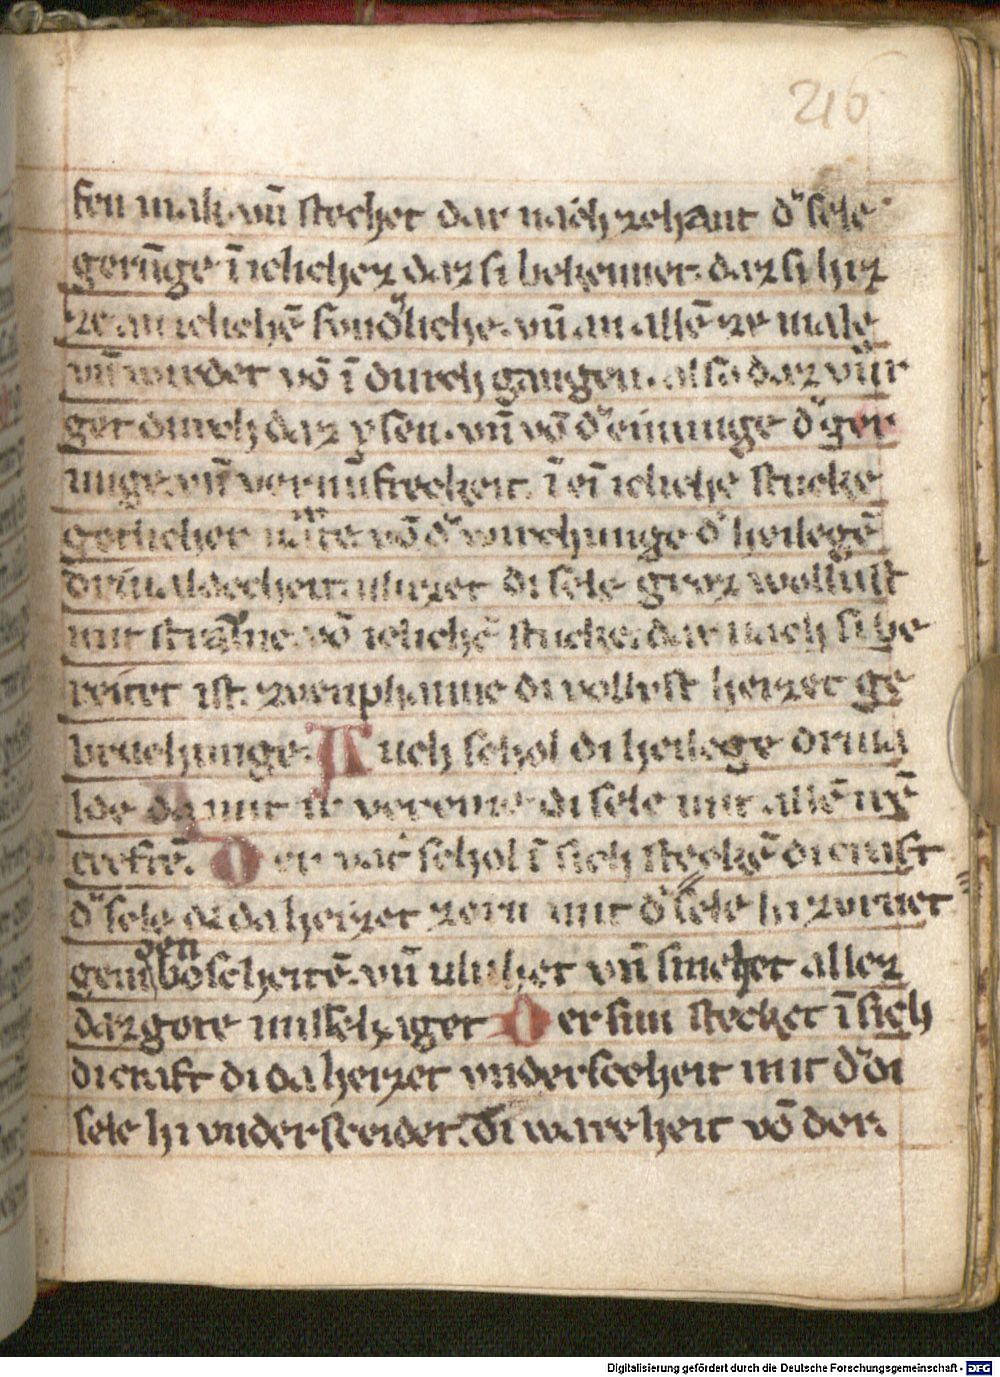 216
fen mak. vn̄ stechet dar nach zehant d' sele
gerūge ī ichcher daz si bekennet. daz si hiz
ze an ichchē sond'liche. vn̄ an allē ze male
vn̄ wirdet vō ī durch gangen. also daz vuir
get durch daz ysen. vn̄ vō d' einunge d' ger
unge. vn̄ vernūftecheit. ī eī ichche stucke
getlicher vō d' wurchunge d' heilegē
driualdecheit. uluzet di sele groz wollust
mit vō ichchē stucke. dar nach si be
reitet ist. zvenphanne di vollust heizet ge
bruchunge. Auch schol di heilege driua
lde da mit ir vereine di sele mit allē irē
creftē. Der vat' schol ī sich steckē di craft
d' sele di da heizet zorn mit d' sele hi zvrnet
gen
gein boscheitē. vn̄ uluhet vn̄ smehet allez
daz gote missehaget Der sun stecket ī sich
di craft di da heizet vnderscheit mit d' di
sele hi vndersceidet. Di warheit vō der.
Digitalisierung gefördert durch die Deutsche Forschungsgemeinschaft - DFG